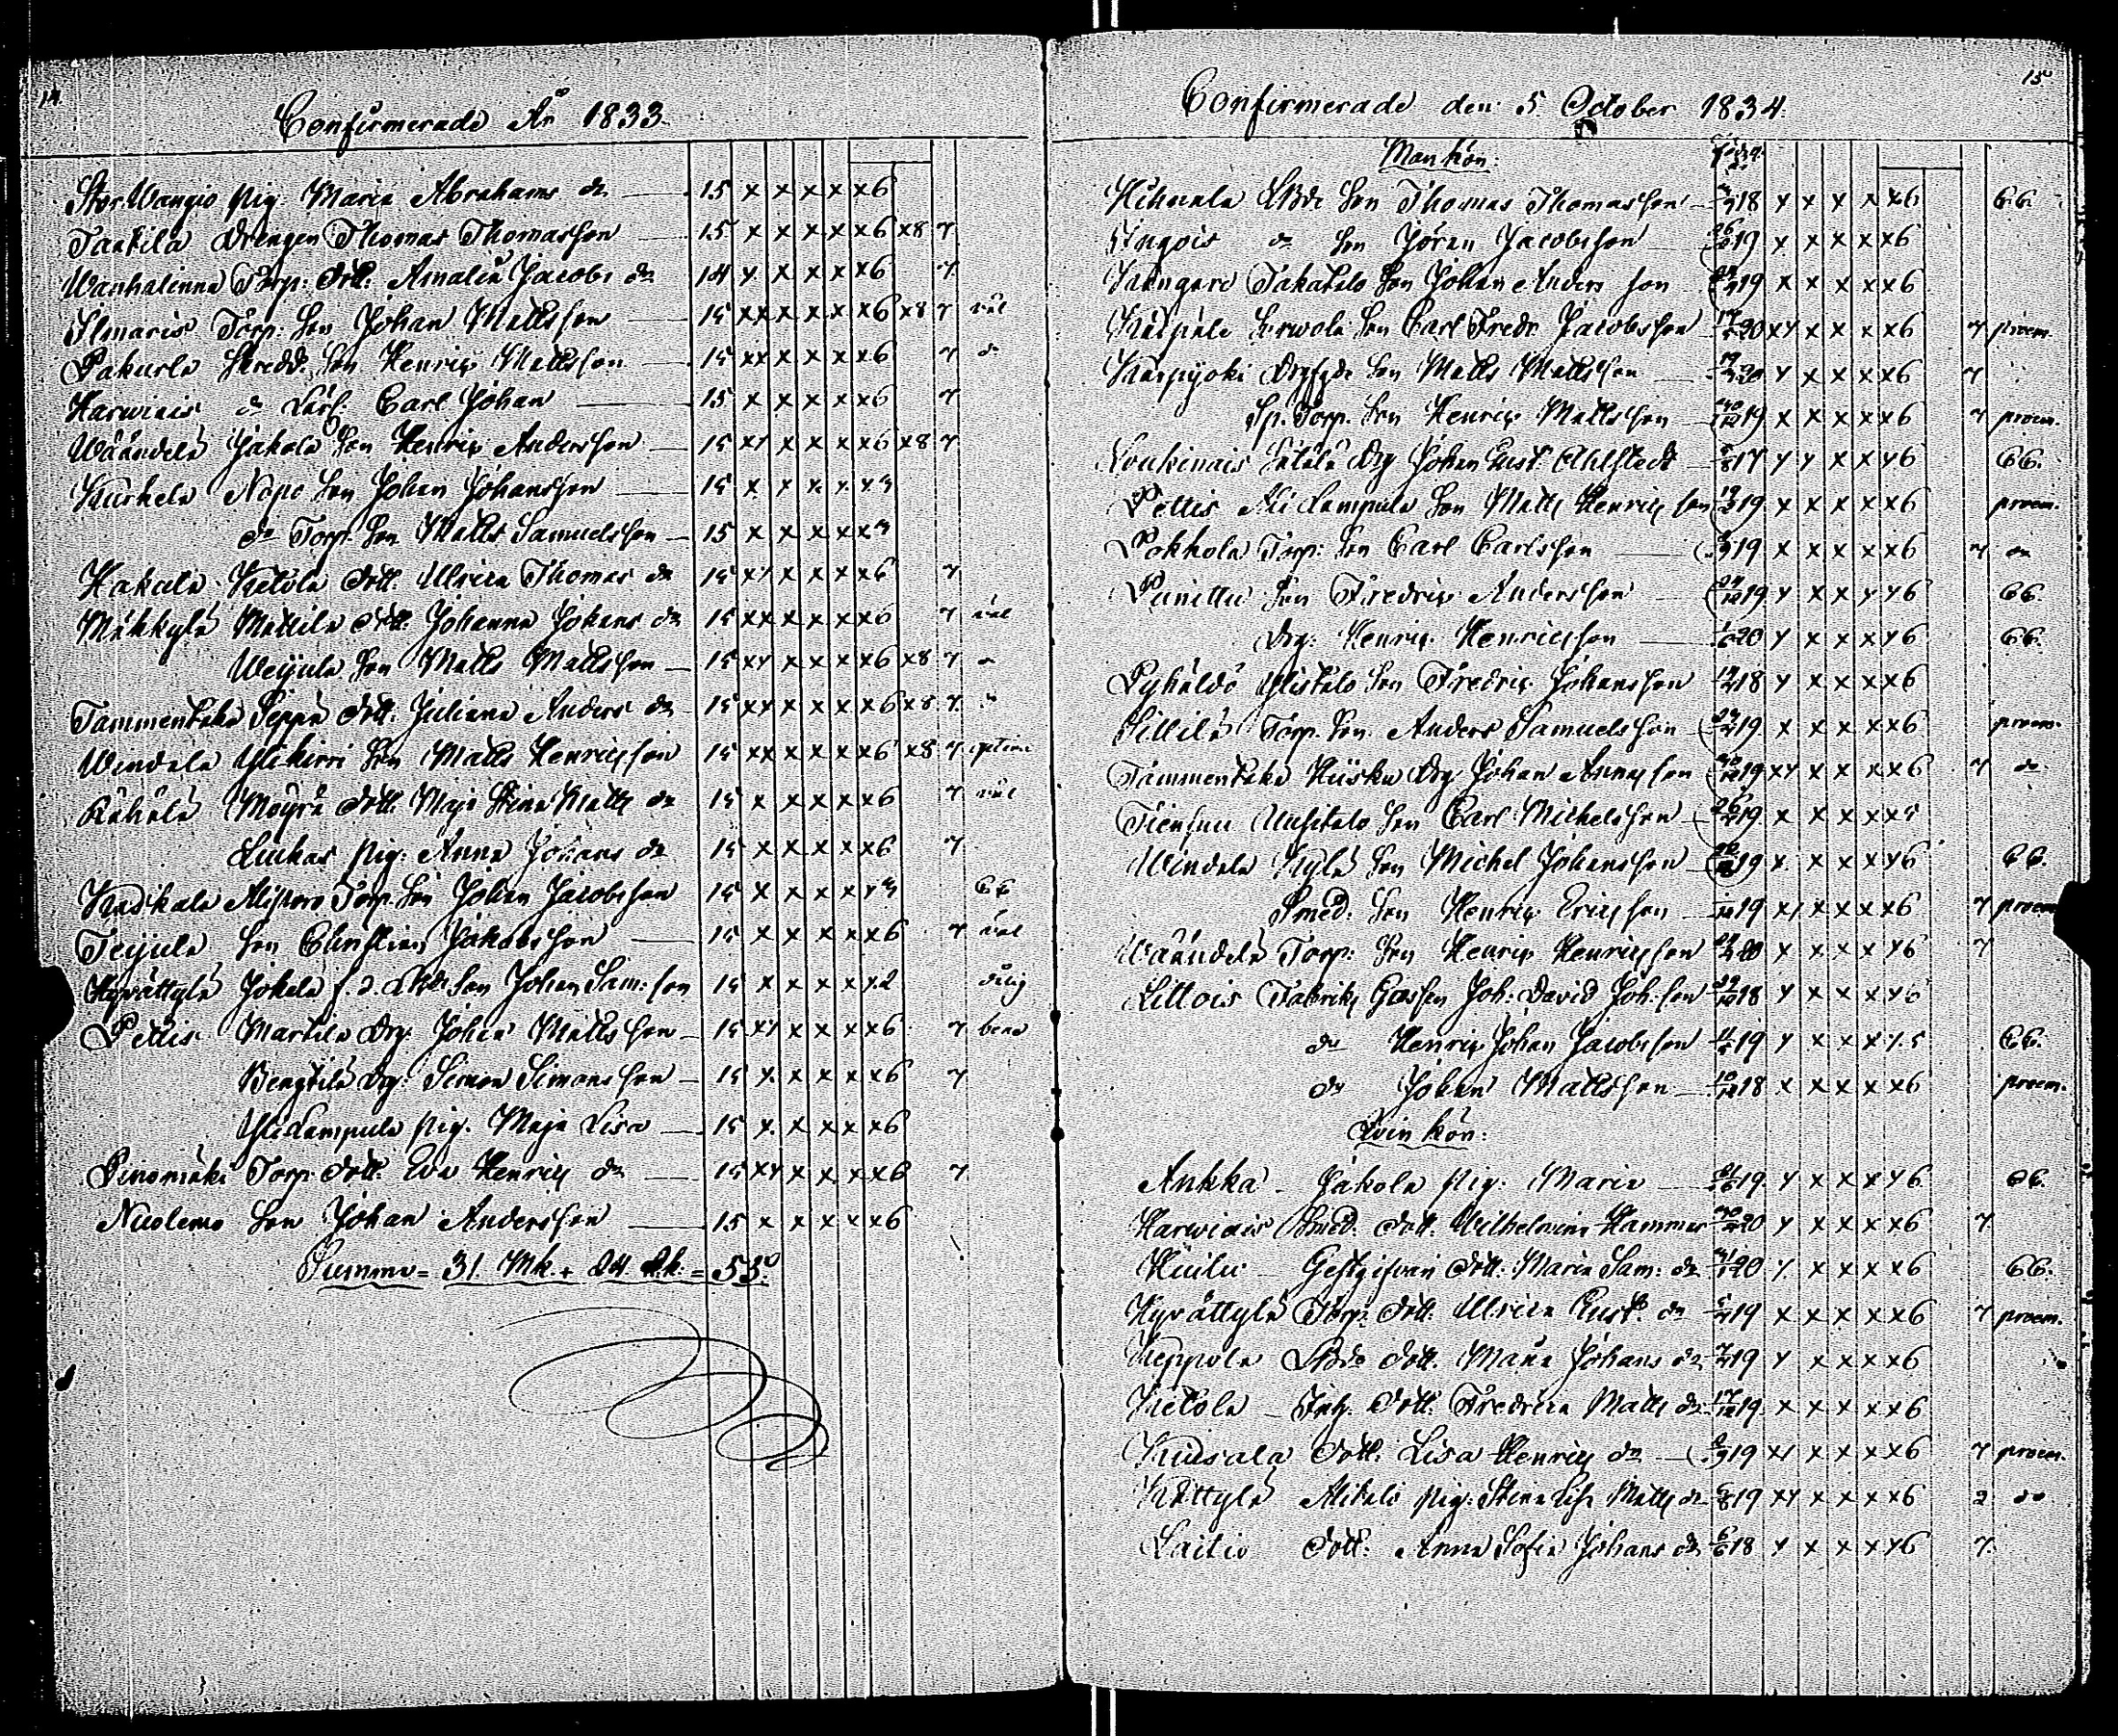 14.
Confirmerade År 1833.
Stor Wangio Pig. Maria Abrahams dr 15 x x x x x6
Taatila Drengen Thomas Thomasson 15 x x x x x6 x8 7
Wanhalinna Torp. Dott. Amalia Jacobs dr 14 x x x x x6 7
Ilmaris Torp. Son Johan Mattsson 15 xx x x x x6 x8 7 väl
Pakurla Son Henric Mattsson 15 xx x x x x6 7 do
Harwiais do Carl Johan 15 x x x x x6 7
Wäändelä Jakola Son Henric Andersson 15 xx x x x x6 x8 7
Kurkela Nopo Son Johan Johansson 15 x x x x x
do Torp. Son Matts Samuelsson 15 x x x x x
Hakula Ketola Dott. Ulrica Thomas dr 15 xx x x x x6 7
Mäkkylä Mattila Dott. Johanna Johans dr 15 xx x x x x6 7 väl
Weijula Son Matts Mattsson 15 xx x x x x6 x8 7
Tammentaka Seppä Dott. Juliana Anders dr 15 xx x x x x6 x8 7
Windala Ylikirri Son Matts Henricsson 15 xx x x x x6 x8 7 optime
Räkälä Moyrä Dott. Maja Stina Matts dr 15 x x x x x6 7 väl
Luukas Pig. Anna Johans dr 15 x x x x x6 7
Torp. Son Johan Jacobsson 15 x x x x x
Teijula Son Christian Jakobsson 15 x x x x x6 7 väl
Hyrättylä Jokela Son Johan Sam. son 15 x x x x x2
Pettis Martila Drg. Johan Mattsson 15 xx x x x x6 7 bene
Bengtilä Drg. Simon Simonsson 15 x x x x x6 7
Ylilampula Pig. Maja Lisa 15 x x x x x6
Pinomäki Torp. Dott. Eva Henrics dr 15 xx x x x x6 7
Nuolemo Son Johan Andersson 15 x x x x x6
Summa = 31 Mk. + 24 Qk. = 55
15
Confirmerade den 5 October 1834.
Mankön:
Son Thomas Thomasson 18 x x x x x6
do Son Jöran Jacobsson 19 x x x x x6
Takatalo Son Johan Andersson 19 x x x x x6
Son Carl Fredr. Jacobsson 20 xx x x x x6 7 proem.
Karpijoki Son Matts Mattsson 20 x x x x x6 7
Sp. Torp. Son Henric Mattsson 19 x x x x x6 7 proem.
Loukinais Drg Johan Gust. Ahlstedt 17 x x x x x6
Pettis Alilampula Son Matts Henricsson 19 x x x x x6 proem.
Pokkola Torp. Son Carl Carlsson 19 x x x x x6 7 do
Punittu Son Fredric Andersson 19 x x x x x6
Drg. Henric Henricsson 20 x x x x x6
Pyhältö Ylistalo Son Fredric Johansson 18 x x x x x6
Sillilä Torp. Son Anders Samuelsson 19 x x x x x6 proem.
Tammentaka Kiisku Drg Johan 19 xx x x x x6 7 do
Tiensuu Uusitalo Son Carl Michelsson 19 x x x x x5
Windala Kylä Son Michel Johansson 19 x x x x x6
Smed. Son Henric Ericsson 19 xx x x x x6 7 proem
Wäändelä Torp. Son Henric Henricsson 20 x x x x x6 7
Littois Fabriks Joh. David Joh. son 18 x x x x x6
do Henric Johan Jacobsson 19 x x x x x5
do Johan Mattsson 18 x x x x x6 proem.
Qvinkön:
Ankka Jakola Pig. Maria 19 x x x x x6
Harwiais Smed. Dott. Wilhelmina Hammar 20 x x x x x6 7
Gestgifvari Dott. Maria Sam. dr 20 x x x x x6
Hyrättylä Torp. Dott. Ulrica Gust. dr 19 x x x x x6 7 proem.
Keppola Dott. Maria Johans dr 19 x x x x x6
Ketola Inh. Dott. Fredrica Matts dr 19 x x x x x6
Kuusala Dott. Lisa Henrics dr 19 xx x x x x6 7 proem.
Kättylä Alitalo Pig. Stina Matts dr 19 xx x x x x6 2 do
Laitio Dott. Anna Sofia Johans dr 18 x x x x x6 7.